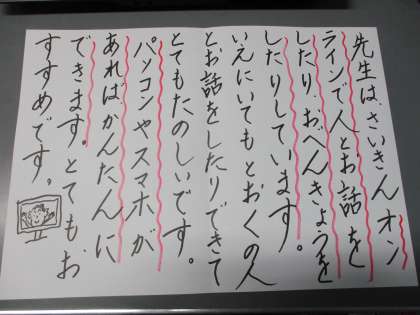 先生は、さいきんオン
ラインで人とお話を
したり、おべんきょうを
したりしています。
いえにいてもとおくの人
とお話をしたりできて
とてもたのしいです。
パソコンやスマホが
あればかんたんに
できます。とても、お
すすめです。